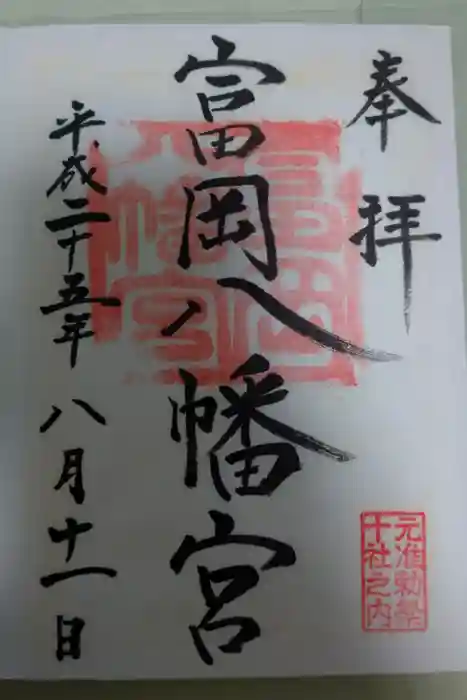 奉拝
富岡八幡宮
平成二十五年八月十一日
富岡
八幡宮
元准勅祭
十社之内